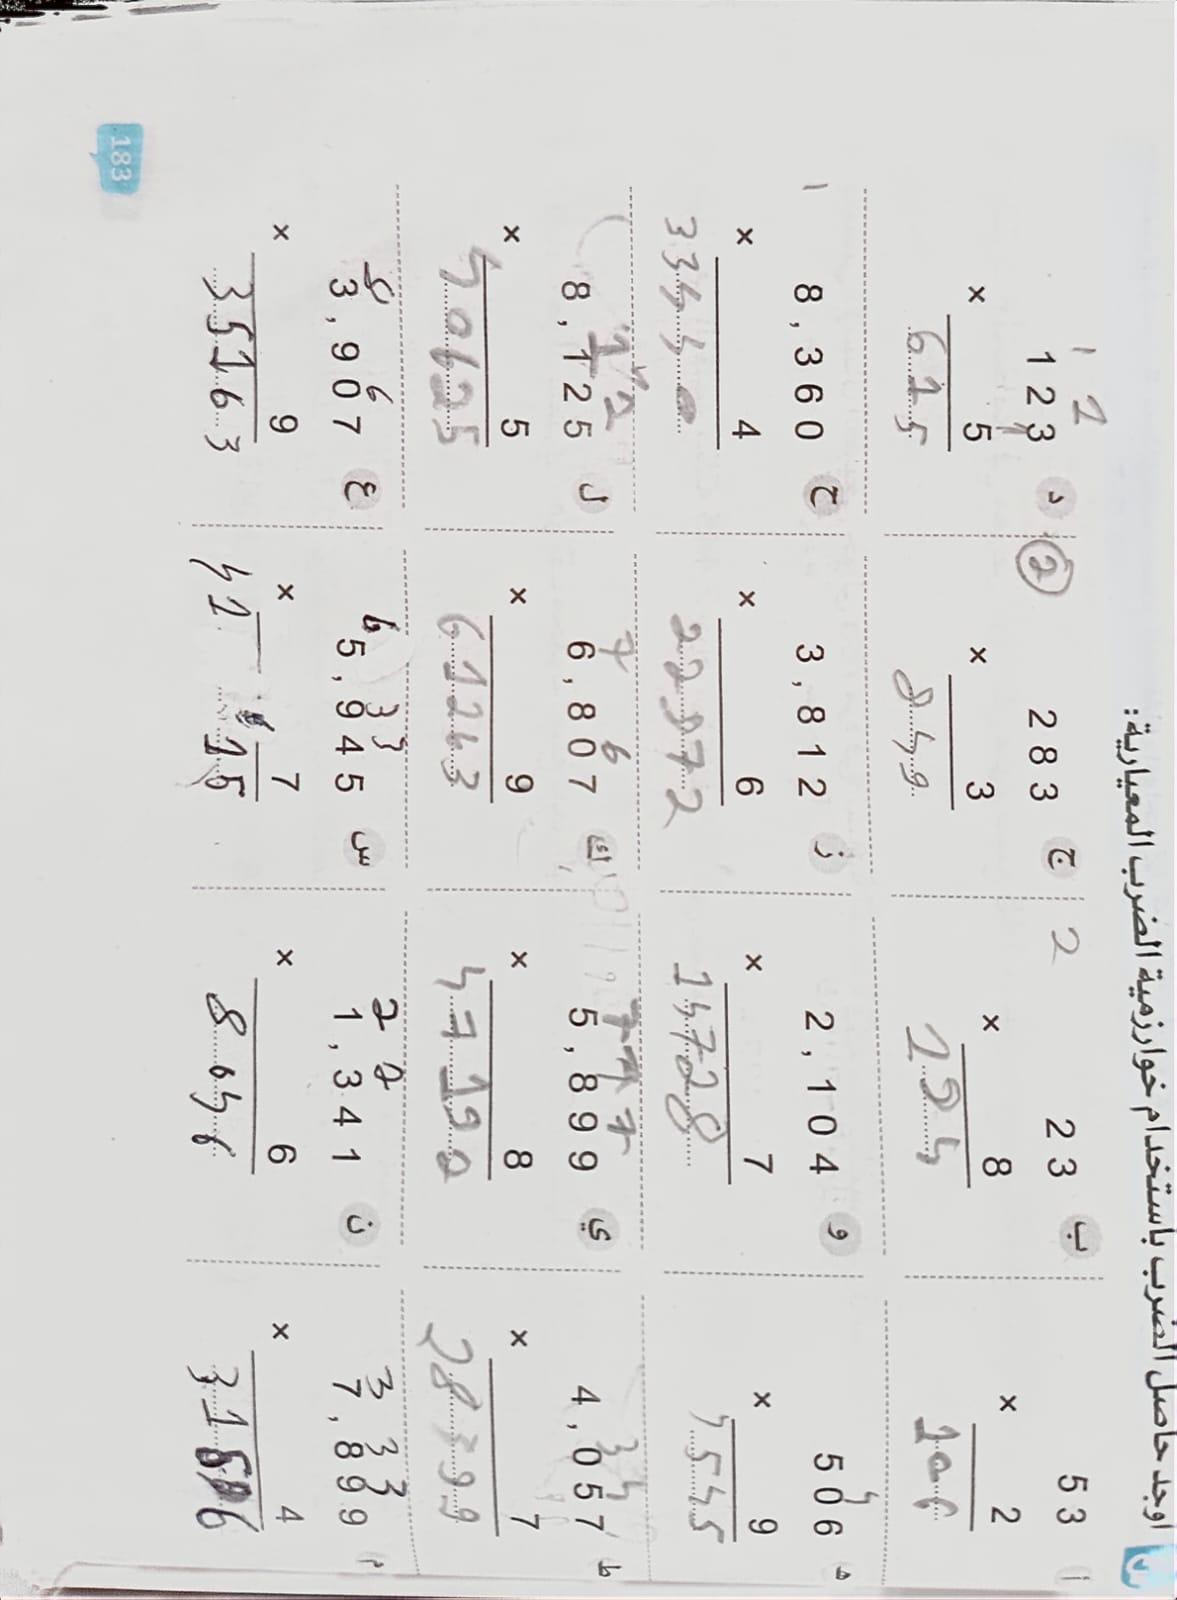 أوجد حاصل الضرب باستخدام خوارزمية الضرب المعيارية:
أ
53
× 2
106
ب
2
23
× 8
194
ج
2
283
× 3
849
د
1 2
123
× 5
615
هـ
4
506
× 9
4545
و
2,104
× 7
14728
ز
3,812
× 6
22872
ح
1
8,360
× 4
33440
ط
3 4
4,057
× 7
28399
ي
7 7 7
5,899
× 8
47192
ك
7 6
6,807
× 9
61263
ل
1 2
8,125
× 5
40625
م
3 3 3
7,899
× 4
31596
ن
2 2
1,341
× 6
8046
س
6 3 3
5,945
× 7
41 15
ع
8 6
3,907
× 9
35163
183